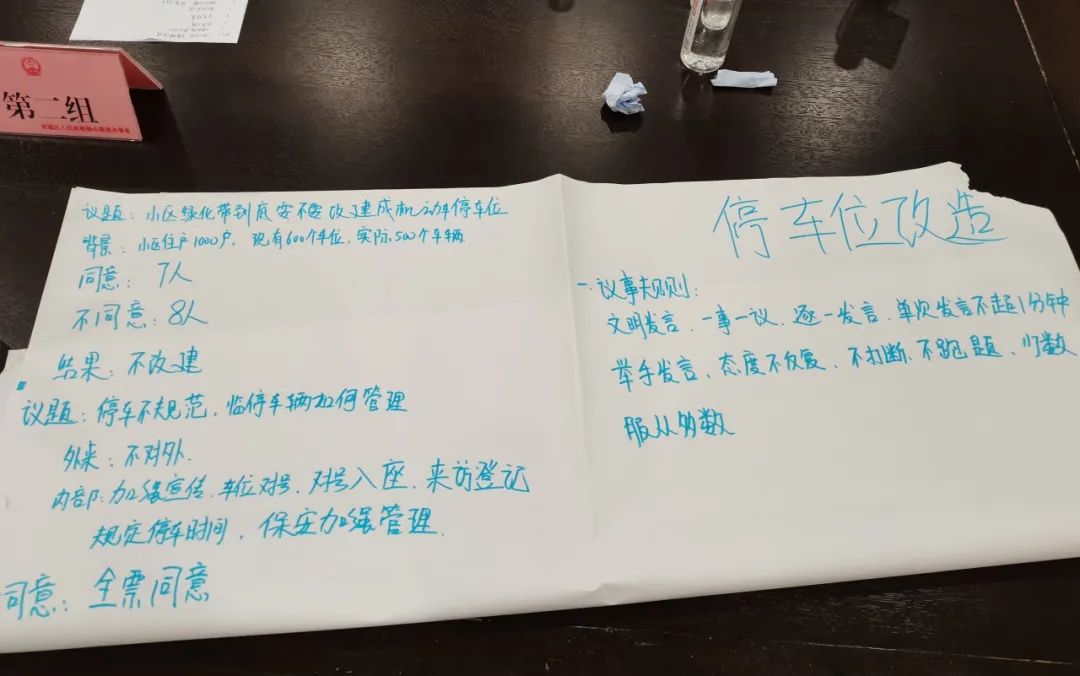 第二组
议题：小区绿化带到底要不要改建成机动车停车位
背景：小区住户1000户，现有600个车位，实际500个车辆
同意：7人
不同意：8人
结果：不改建
议题：停车不规范，临停车辆如何管理
外来：不对外.
内部：加强宣传、车位对号、对号入座、来访登记
规定停车时间，保安加强管理.
同意：全票同意
停车位改造
一.议事规则：
文明发言、一事一议、逐一发言、单次发言不超1分钟
举手发言、态度不反复、不打断、不跑题、少数
服从多数